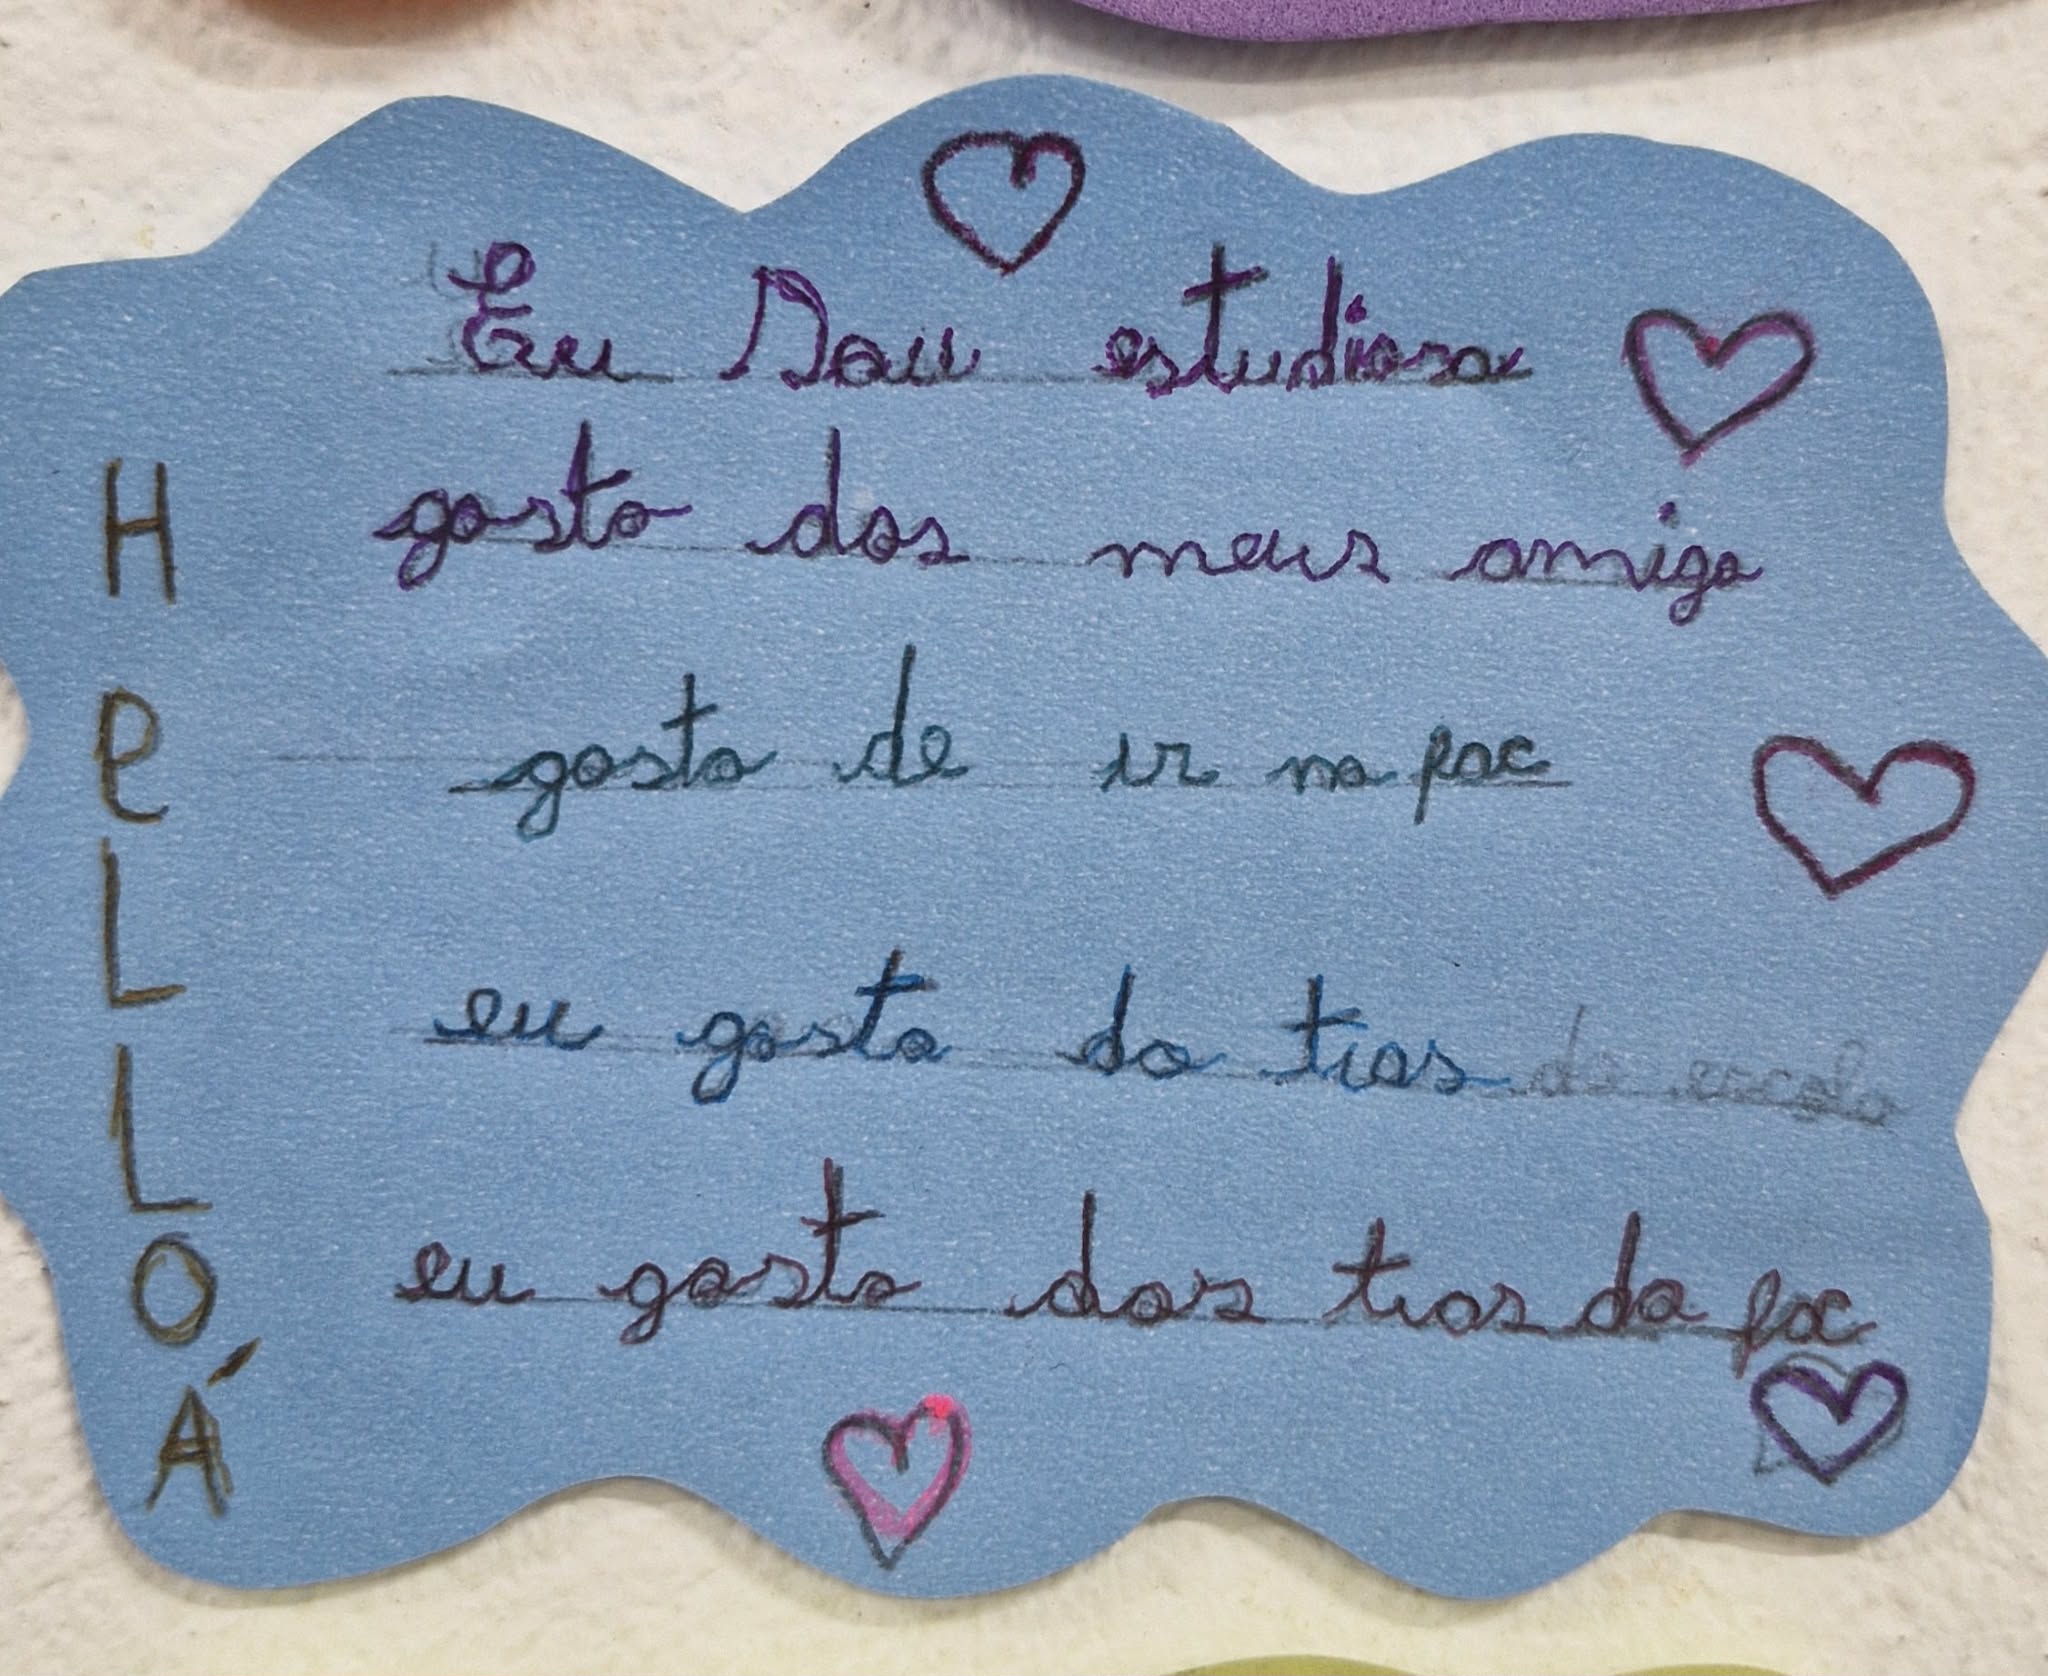 HeLLOÁ
Eu Sou estudiosa
gosto dos meus amigo
gosto de ir na pac
eu gosto da tias da escola
eu gosto das tias da pac